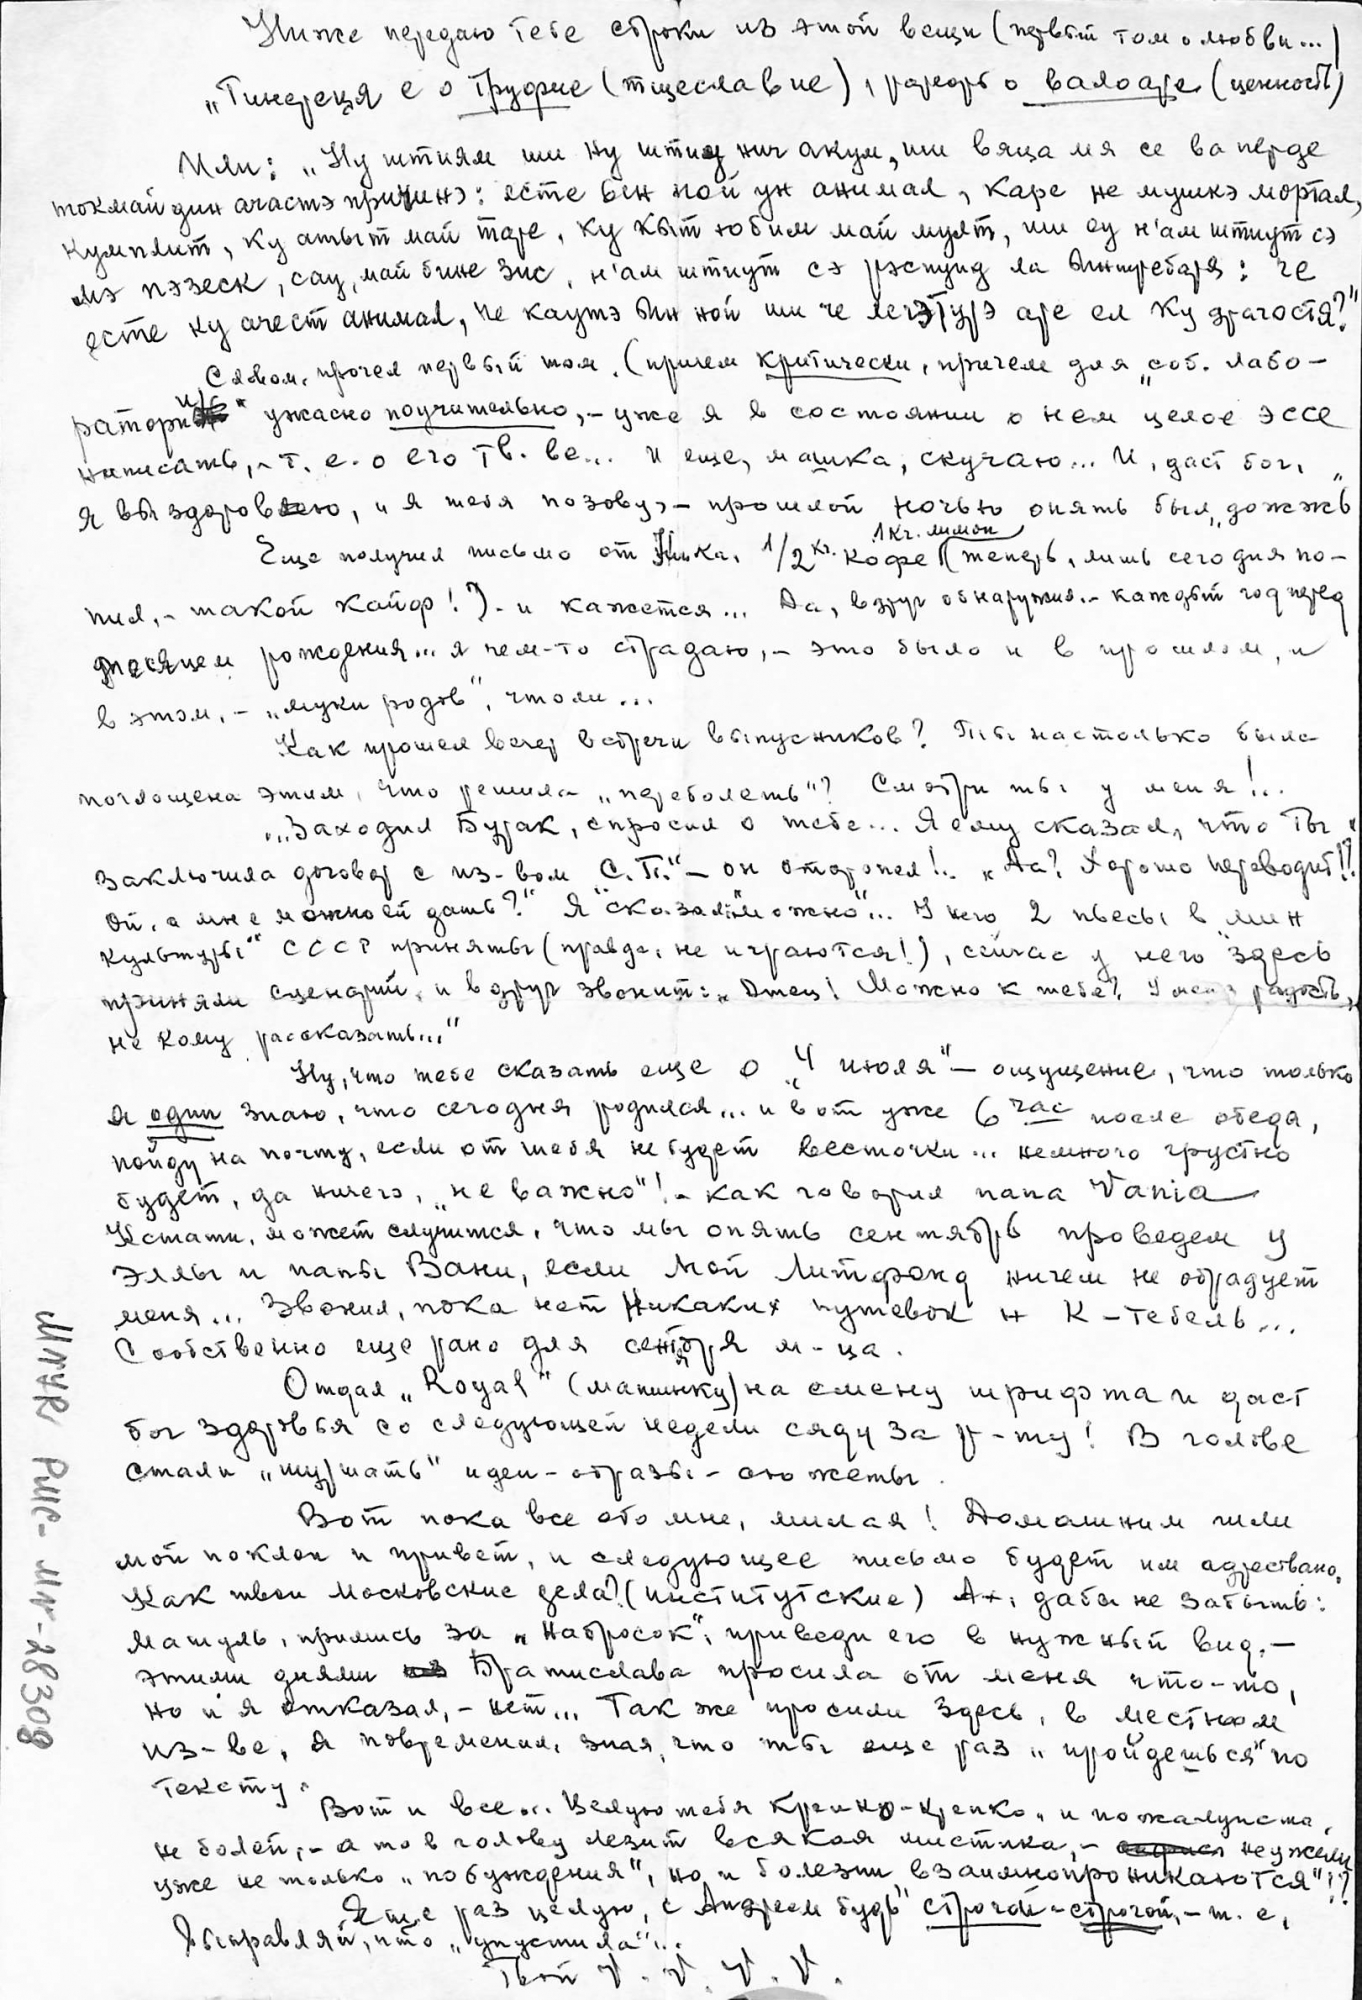 Ниже передаю тебе строки из этой вещи (первый том о любви...)
„Тинереця е о Труфие (тщеславие), рареорь о валоаре (ценность)
Или: „Ну штиям ши ну штиу нич акум, ши вяца мя се ва перде
токмай дин ачастэ причинэ: есте ын ной ун анимал, каре не мушкэ мортал,
кумплит, ку атыт май таре, ку кыт юбим май мулт, ши еу н'ам штиут сэ
мэ пэзеск, сау, май бине зис, н'ам штиут сэ рэспунд ла ынтребаря: че
есте ку ачест анимал, че каутэ ын ной ши че легэтурэ аре ел ку драгостя?"
Словом, прочел первый том. (причем критически, причем для „соб. лабо-
ратории" ужасно поучительно, - уже я в состоянии о нем целое эссе
написать, - т. е. о его тв-ве... И еще, машка, скучаю... И, даст бог,
я выздоровлю, и я тебя позову, - прошлой ночью опять был „дожжь"
Еще получил письмо от Ника, 1/2 кг. кофе, 1 кг. лимон (теперь, лишь сегодня по-
пил, - такой кайф!) - и кажется... Да, вдруг обнаружил, - каждый год перед
месяцем рождения... я чем-то страдаю, - это было и в прошлом, и
в этом, - „муки родов", что ли...
Как прошел вечер встречи выпускников? Ты настолько была
поглощена этим, что решила „переболеть"? Смотри ты у меня!..
...Заходил Бурак, спросил о тебе... Я ему сказал, что Ты „
заключила договор с из-вом С.П." - он оторопел!.. „Да? Хорошо переводит!?
Ой, а мне можно ей дать?" Я сказал: „можно"... У него 2 пьесы в „мин
культуры" СССР приняты (правда, не играются!), сейчас у него здесь
приняли сценарий, и вдруг звонит: „Отец! Можно к тебе? У меня радость,
не кому рассказать..."
Ну, что тебе сказать еще о „4 июля" - ощущение, что только
я один знаю, что сегодня родился... и вот уже 6 час после обеда,
пойду на почту, если от тебя не будет весточки... немного грустно
будет, да ничего, „не важно"! - как говорил папа Vania
Кстати, может случится, что мы опять сентябрь проведем у
Эллы и папы Вани, если мой Литфонд ничем не обрадует
меня... Звонил, пока нет никаких путевок н К-тебель...
Собственно еще рано для сентября м-ца.
Отдал „Royal" (машинку) на смену шрифта и даст
бог здоровья со следующей недели сяду за р-ту! В голове
стали „шуршать" идеи - образы - сюжеты.
Вот пока все обо мне, милая! Домашним шли
мой поклон и привет, и следующее письмо будет им адресвано.
Как твои московские дела? (институтские) Ах, дабы не забыть:
Мачуль, примись за „Набросок", приведи его в нужный вид, -
этими днями Братислава просила от меня что-то,
но и я отказал, - нет... Так же просили здесь, в местном
из-ве, я повременил, зная, что ты еще раз „пройдешься" по
тексту.
Вот и все... Целую тебя крепко-крепко, и пожалуйста,
не болей, - а то в голову лезит всякая мистика, - неужели
уже не только „побуждения", но и болезни „взаимопроникаются"!?
Еще раз целую, с Андреем будь „строгой-строгой", - т. е.
Выправляй, что „упустила"...
Твой V. V. V. V.